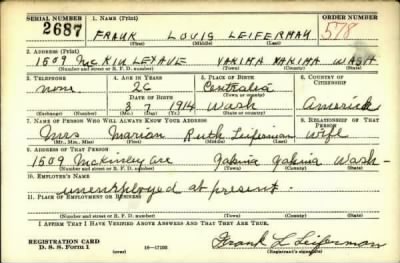 SERIAL NUMBER 1. NAME (Print) ORDER NUMBER
2687 FRANK LOUIS LEIFERMAN 578
(First) (Middle) (Last)
2. ADDRESS (Print)
1509 McKINLEY AVE YAKIMA YAKIMA WASH
(Number and street or R. F. D. number) (Town) (County) (State)
3. TELEPHONE 4. AGE IN YEARS 5. PLACE OF BIRTH 6. COUNTRY OF CITIZENSHIP
none 26 Centralia
DATE OF BIRTH (Town or county)
3 7 1914 Wash America
(Exchange) (Number) (Mo.) (Day) (Yr.) (State or country)
7. NAME OF PERSON WHO WILL ALWAYS KNOW YOUR ADDRESS 8. RELATIONSHIP OF THAT PERSON
Mrs Marian Ruth Leiferman Wife
(Mr., Mrs., Miss) (First) (Middle) (Last)
9. ADDRESS OF THAT PERSON
1509 McKinley Ave Yakima Yakima Wash-
(Number and street or R. F. D. number) (Town) (County) (State)
10. EMPLOYER'S NAME
unemployed at present.
11. PLACE OF EMPLOYMENT OR BUSINESS
(Number and street or R. F. D. number) (Town) (County) (State)
I AFFIRM THAT I HAVE VERIFIED ABOVE ANSWERS AND THAT THEY ARE TRUE.
REGISTRATION CARD
D. S. S. Form 1 (over) 16—17105 Frank L Leiferman
(Registrant's signature)